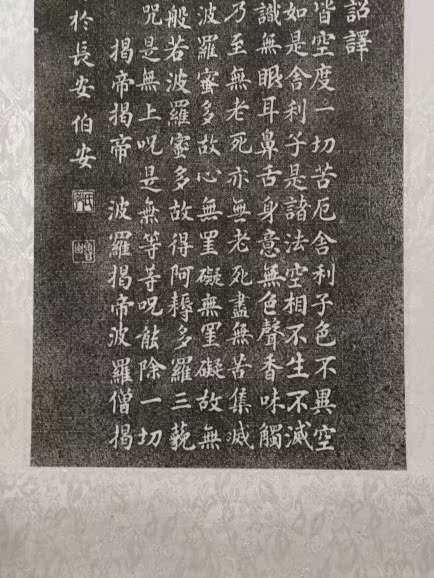 詔譯
皆空度一切苦厄舍利子色不異空
如是舍利子是諸法空相不生不滅
識無眼耳鼻舌身意無色聲香味觸
乃至無老死亦無老死盡無苦集滅
波羅蜜多故心無罣礙無罣礙故無
般若波羅蜜多故得阿耨多羅三藐
呪是無上呪是無等等呪能除一切
揭帝揭帝 波羅揭帝波羅僧揭
於長安伯安